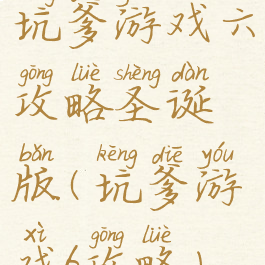 坑爹游戏六
gōng lüè shèng dàn
攻略圣诞
bǎn kēng diē yóu
版(坑爹游
xì gōng lüè
戏6攻略)